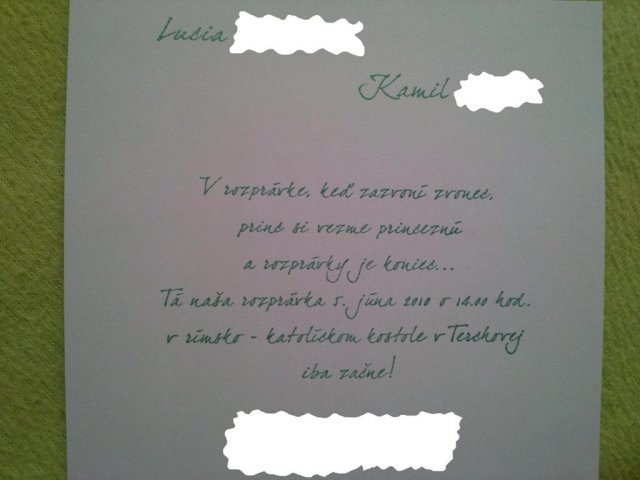 Lucia
Kamil
V rozprávke, keď zazvoní zvonec,
princ si vezme princeznú
a rozprávky je koniec...
Tá naša rozprávka 5. júna 2010 o 14.00 hod.
v rímsko - katolíckom kostole v Terchovej
iba začne!